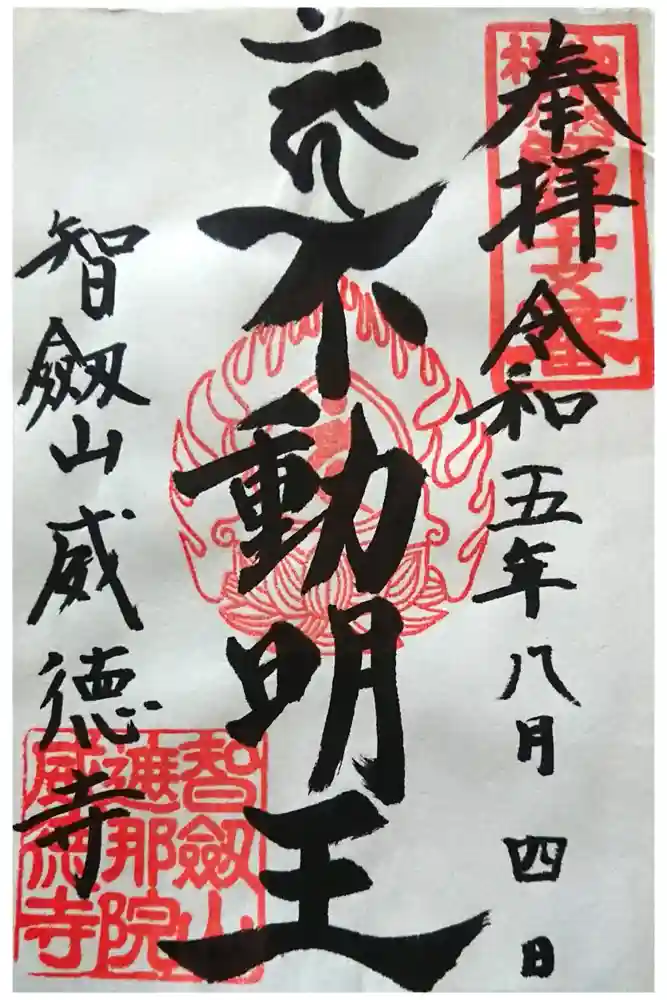 奉拝
令和五年八月四日
不動明王
智劔山威徳寺
智劔山
遮那院
威徳寺